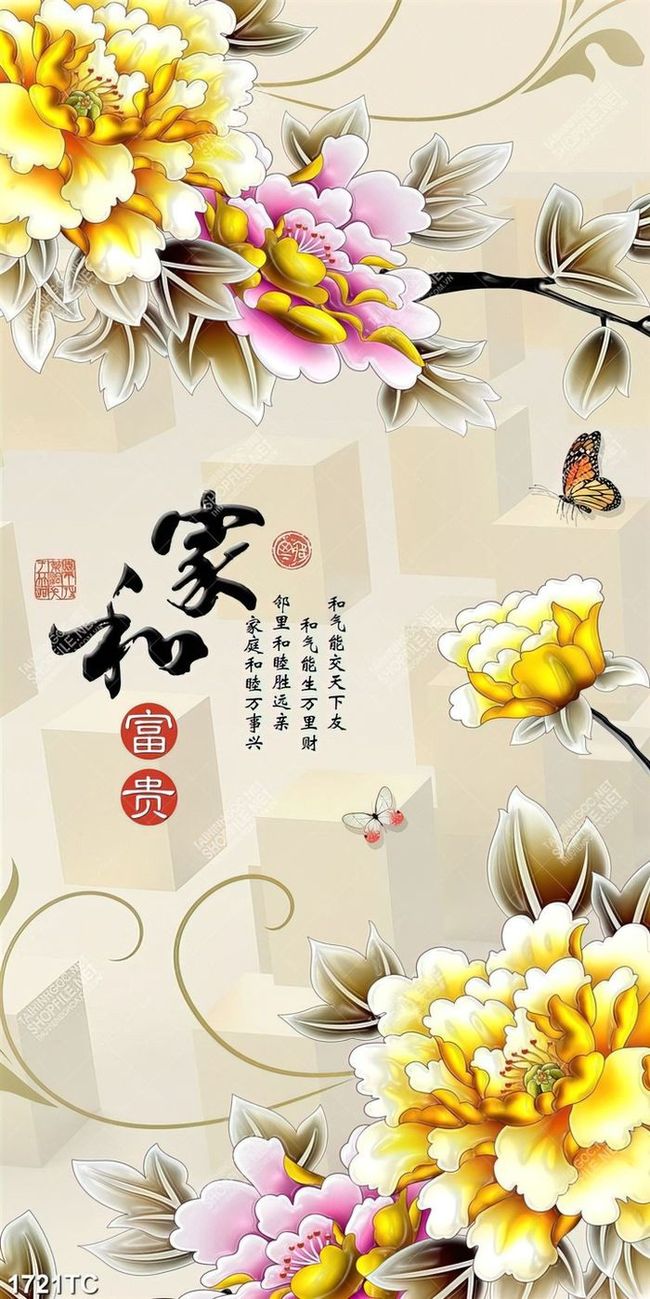 家和
富贵
和气能交天下友
和气能生万里财
邻里和睦胜远亲
家庭和睦万事兴
TAIHINHGOC.NET
SHOPFILE.NET
1721TC